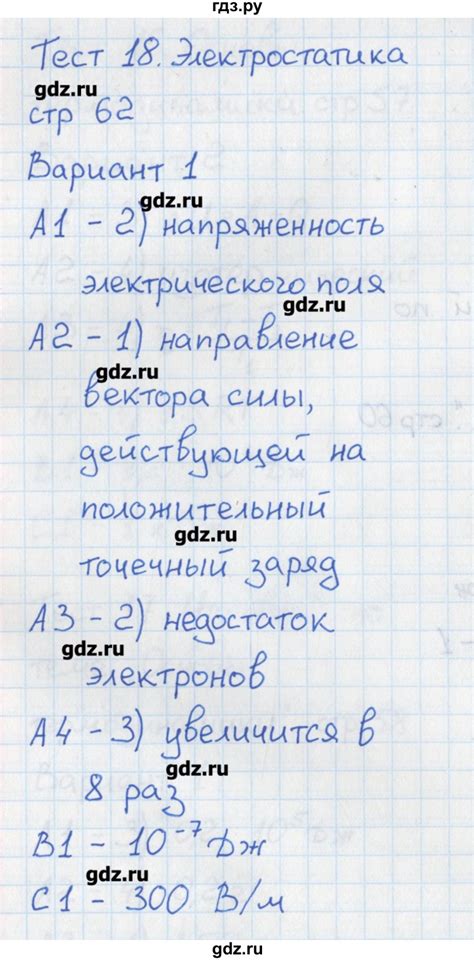 гдз.ру
Тест 18. Электростатика
gdz.ru
стр 62
Вариант 1
gdz.ru
А1 - 2) напряженность
электрического поля
gdz.ru
А2 - 1) направление
gdz.ru
вектора силы,
действующей на
gdz.ru
положительный
gdz.ru
точечный заряд
А3 - 2) недостаток
gdz.ru
электронов
А4 - 3) увеличится в
gdz.ru
8 раз
В1 - 10⁻⁷ Дж
gdz.ru
С1 - 300 В/м
gdz.ru